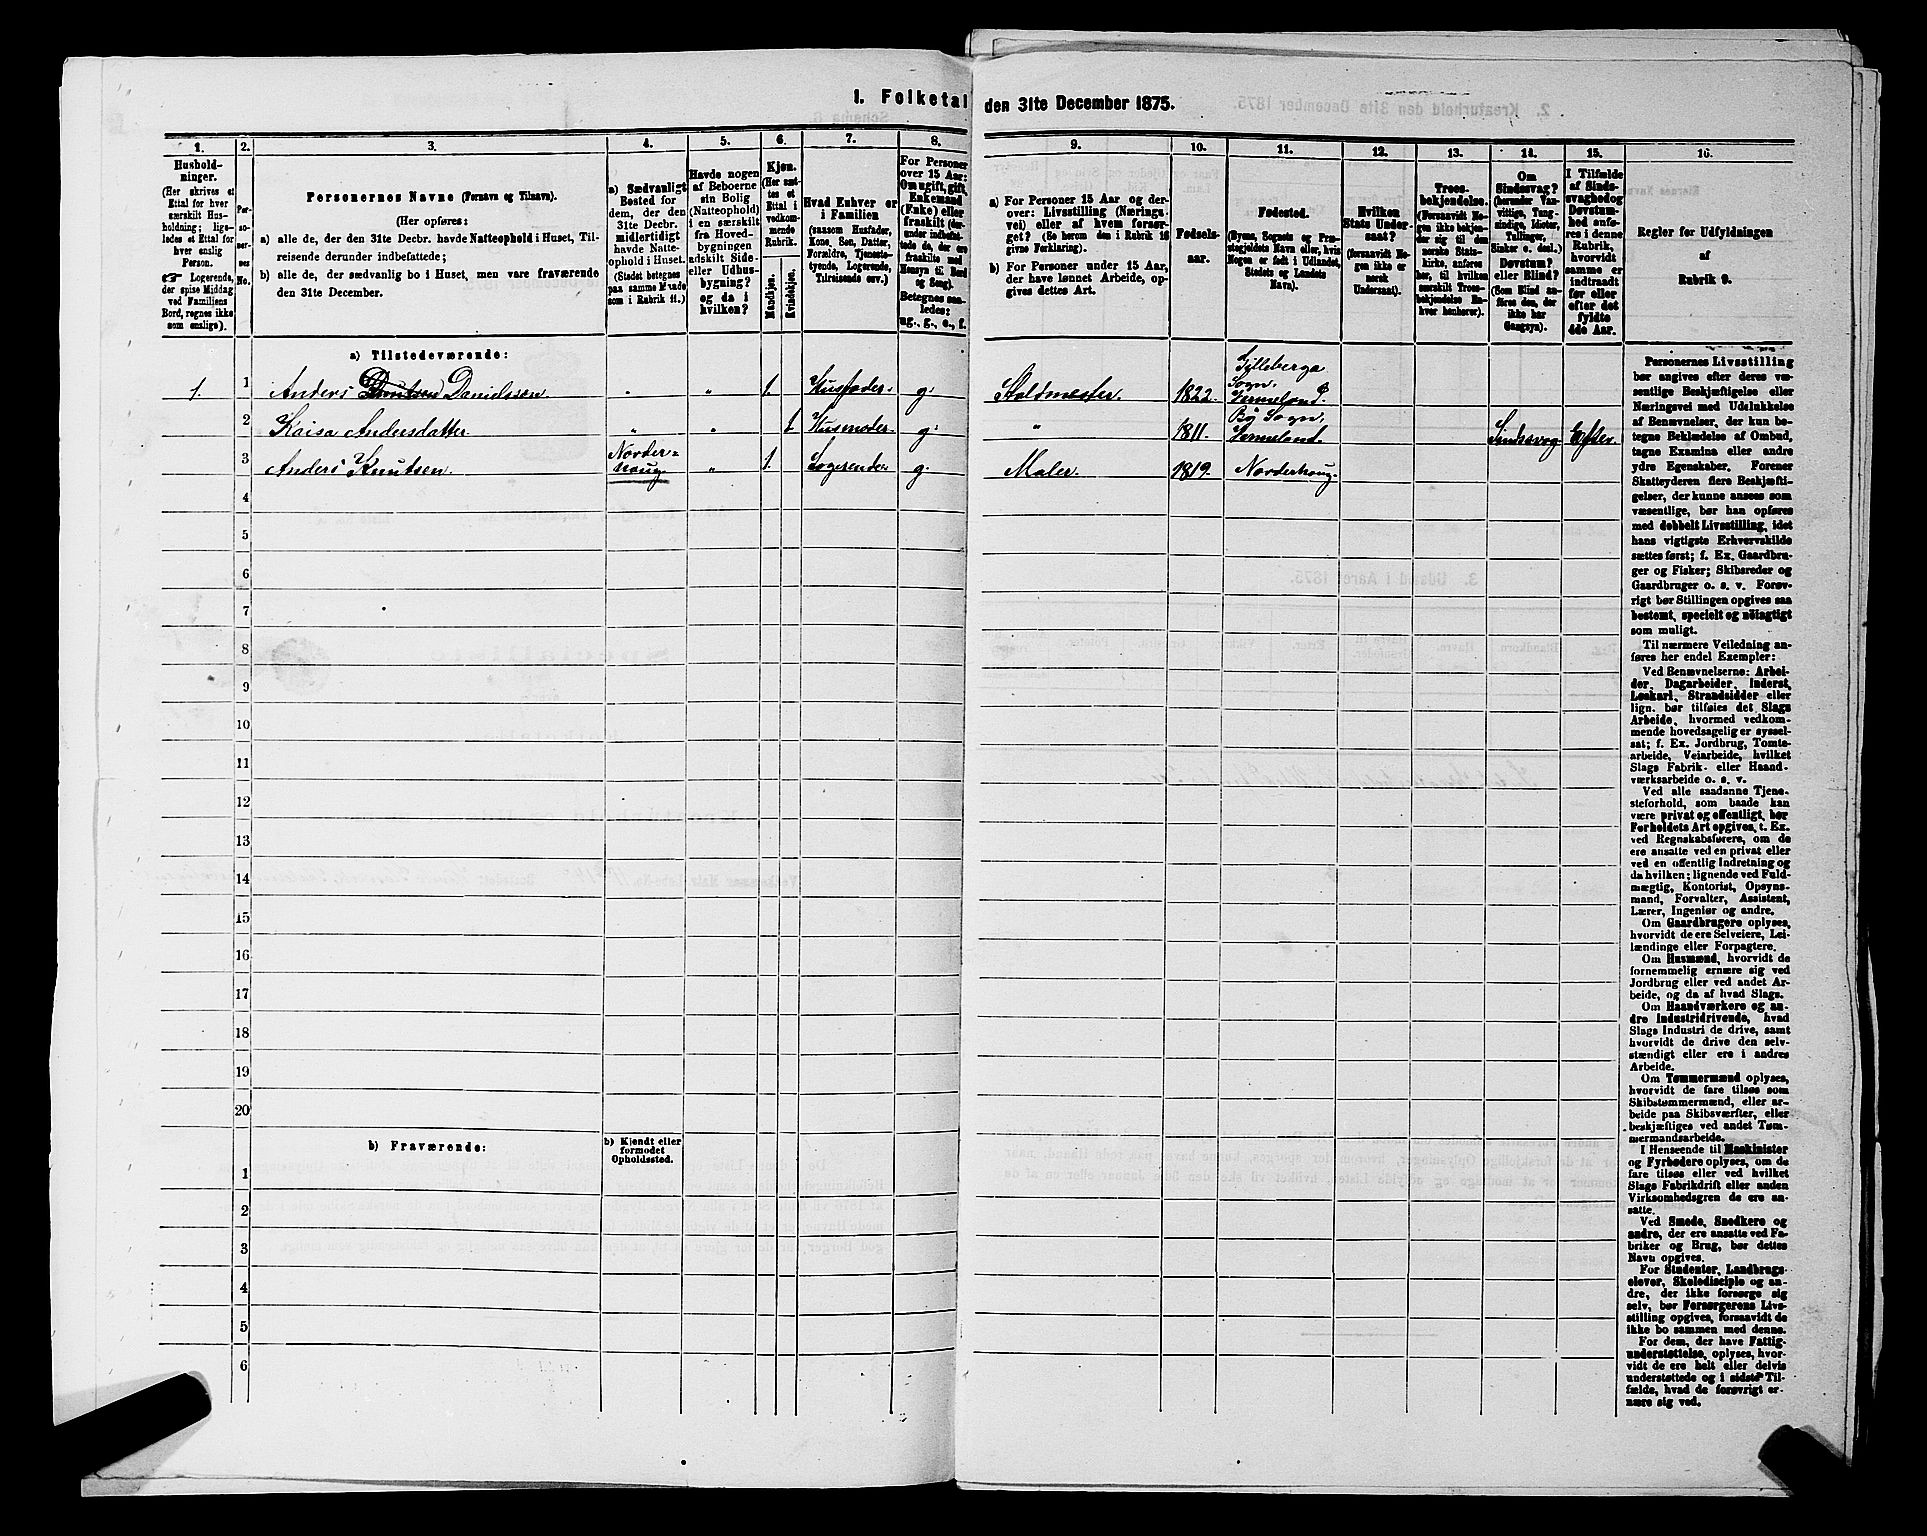 I. Folketal den 31te December 1875.
1. 2. 3. 4. 5. 6. 7. 8. 9. 10. 11. 12. 13. 14. 15. 16.
Hushold-
ninger.
(Her skrives et
Ettal for hver
særskilt Hus-
holdning; lige-
ledes et Ettal for
hver enslig
Person.
☞ Logerende,
der spise Middag
ved Familiens
Bord, regnes ikke
som enslige).
Per-
so-
ner-
nes
No.
Personernes Navne (Fornavn og Tilnavn).
(Her opføres:
a) alle de, der den 31te Decbr. havde Natteophold i Huset, Til-
reisende derunder indbefattede;
b) alle de, der sædvanlig bo i Huset, men vare fraværende
den 31te December.
a) Sædvanligt
Bosted for
dem, der den
31te Decbr.
midlertidigt
havde Natte-
ophold i Huset.
(Stedet betegnes
paa samme Maade
som i Rubrik 11.)
Havde nogen
af Beboerne
sin Bolig
(Natteophold)
i en særskilt
fra Hoved-
bygningen
adskilt Side-
eller Udhus-
bygning?
og da i
hvilken?
Kjøn.
(Her sæt-
tes et
Ettal i
vedkom-
mende
Rubrik.
Mandkjøn.
Kvindekjøn.
Hvad Enhver er
i Familien
(saasom Husfader,
Kone, Søn, Datter,
Forældre, Tjeneste-
tyende, Logerende,
Tilreisende osv.)
For Personer
over 15 Aar:
Om ugift, gift,
Enkemand
(Enke) eller
fraskilt (der-
under indbefat-
tede de, der ere
fraskilte med
Hensyn til Bord
og Seng).
Betegnes saa-
ledes:
ug., g., e., f.
a) For Personer 15 Aar og der-
over: Livsstilling (Nærings-
vei) eller af hvem forsør-
get? (Se herom den i Rubrik 16
givne Forklaring).
b) For Personer under 15 Aar,
der have lønnet Arbeide, op-
gives dettes Art.
Fødsels-
aar.
Fødested.
(Byens, Sognets og Præ-
stegjeldets Navn eller, hvis
Nogen er født i Udlandet,
Stedets og Landets
Navn).
Hvilken
Stats Under-
saat?
(forsaavidt No-
gen ikke er
norsk
Undersaat).
Troes-
bekjendelse.
(Forsaavidt No-
gen ikke bekjen-
der sig til den
norske Stats-
kirke, anføres
her, til hvilken
særskilt Troes-
bekjendelse En-
hver henhører).
Om
Sindssvag?
(herunder Van-
vittige, Tung-
sindige, Idioter,
Tullinger,
Sinker o. desl.)
Døvstum?
eller Blind?
(Som Blind an-
føres den, der
ikke har
Gangsyn).
I Tilfælde
af Sinds-
svaghed og
Døvstum-
hed anfø-
res i denne
Rubrik,
hvorvidt
samme er
indtraadt
før eller
efter det
fyldte
4de Aar.
Regler for Udfyldningen
af
Rubrik 9.
a) Tilstedeværende:
1. 1 Anders Danielssen " " 1. Husfader. g. Staldmester. 1822. Gilleberga Sogn. Vermeland.
2 Kaisa Andersdatter " " 1 Husmoder. g. " 1811. By Sogn. Vermeland. Sindssvag Efter.
3 Anders Knutsen. Norder=houg " 1. Logerende. g. Maler. 1819. Norderhoug.
4
5
6
7
8
9
10
11
12
13
14
15
16
17
18
19
20
b) Fraværende:
b) Kjendt eller
formodet
Opholdssted.
1
2
3
4
5
6
Personernes Livsstilling
bør angives efter deres væ-
sentlige Beskjæftigelse eller
Næringsvei med Udelukkelse
af Benævnelser, der kun be-
tegne Beklædelse af Ombud,
tagne Examina eller andre
ydre Egenskaber. Forener
Skatteyderen flere Beskjæfti-
gelser, der kunne ansees som
væsentlige, bør han opføres
med dobbelt Livsstilling, idet
hans vigtigste Erhvervskilde
sættes først; f. Ex. Gaardbru-
ger og Fisker; Skibsreder og
Gaardbruger o. s. v. Forøv-
rigt bør Stillingen opgives saa
bestemt, specielt og nøiagtigt
som muligt.
Til nærmere Veiledning an-
føres her endel Exempler:
Ved Benævnelserne: Arbei-
der, Dagarbeider, Inderst,
Løskarl, Strandsidder eller
lign. bør tilføies det Slags
Arbeide, hvormed vedkom-
mende hovedsagelig er syssel-
sat; f. Ex. Jordbrug, Tomte-
arbeide, Veiarbeide, hvilket
Slags Fabrik- eller Haand-
værksarbeide o. s. v.
Ved alle saadanne Tjene-
steforhold, som baade kan
være privat og offentligt, bør
Forholdets Art opgives, t. Ex.
ved Regnskabsførere, om de
ere ansatte ved en privat eller
ved en offentlig Indretning og
da hvilken; lignende ved Fuld-
mægtig, Kontorist, Opsyns-
mand, Forvalter, Assistent,
Lærer, Ingeniør og andre.
Om Gaardbrugere oplyses,
hvorvidt de ere Selveiere, Lei-
lændinge eller Forpagtere.
Om Husmænd, hvorvidt de
fornemmelig ernære sig ved
Jordbrug eller ved andet Ar-
beide, og da af hvad Slags.
Om Haandværkere og an-
dre Industridrivende, hvad
Slags Industri de drive, samt
hvorvidt de drive den selv-
stændigt eller ere i andres
Arbeide.
Om Tømmermænd oplyses,
hvorvidt de fare tilsøs som
Skibstømmermænd, eller ar-
beide paa Skibsværfter, eller
beskjæftiges ved andet Tøm-
mermandsarbeide.
I Henseende til Maskinister
og Fyrbødere oplyses, om de
fare tilsøs eller ved hvilket
Slags Fabrikdrift eller anden
Virksomhedsgren de ere an-
satte.
Ved Smede, Snedkere og
andre, der ere ansatte ved Fa-
briker og Brug, bør dettes
Navn opgives.
For Studenter, Landbrugs-
elever, Skoledisciple og an-
dre, der ikke forsørge sig
selv, bør Forsørgerens Livs-
stilling opgives, forsaavidt de
ikke bo sammen med denne.
For dem, der have Fattig-
understøttelse, oplyses, hvor-
vidt de ere helt eller delvis
understøttede og i sidste Til-
fælde, hvad de forøvrigt er-
nære sig ved.